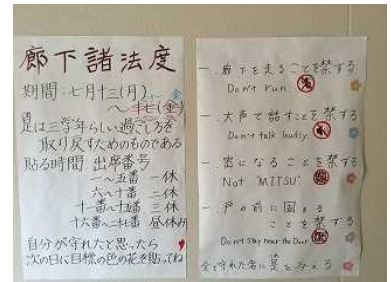 廊下諸法度
期間:七月十三(月)
~十七(金)
是は三学年らしい過ごし方を
取り戻すためのものである
貼る時間 出席番号
一~五番 一休
六~十番 二休
十一番~十五番 三休
十六番~二十番 昼休み
自分が守れたと思ったら
次の日に目標の色の花を貼ってね
一、廊下を走ることを禁ずる
Don't run
一、大声で話すことを禁ずる
Don't talk loudly
一、密になることを禁ずる
Not "MITSU"
一、戸の前に固まる
ことを禁ずる
Don't stay near the Door
全て守れた者に是を与える